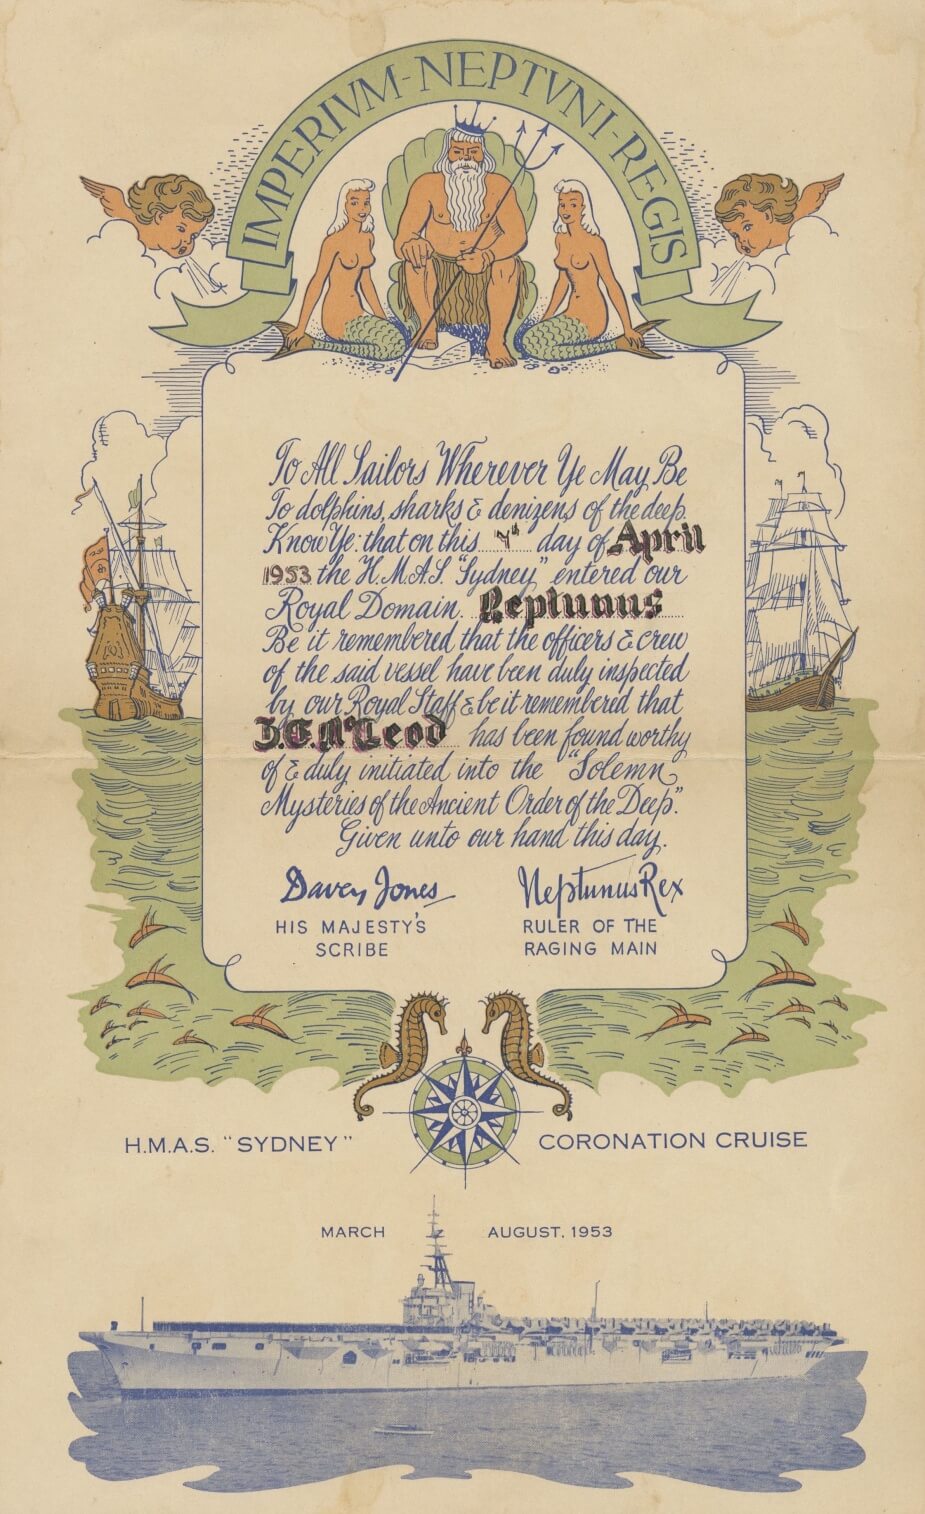 IMPERIVM-NEPTVNI-REGIS
To All Sailors Wherever Ye May Be
To dolphins, sharks & denizens of the deep.
Know Ye: that on this 4th day of April
1953 the H.M.A.S. "Sydney" entered our
Royal Domain. Neptunus
Be it remembered that the officers & crew
of the said vessel have been duly inspected
by our Royal Staff & be it remembered that
McLeod has been found worthy
of & duly initiated into the "Solemn
Mysteries of the Ancient Order of the Deep".
Given unto our hand this day.
Davey Jones Neptunus Rex
HIS MAJESTY'S RULER OF THE
SCRIBE RAGING MAIN
H.M.A.S. "SYDNEY" CORONATION CRUISE
MARCH AUGUST, 1953